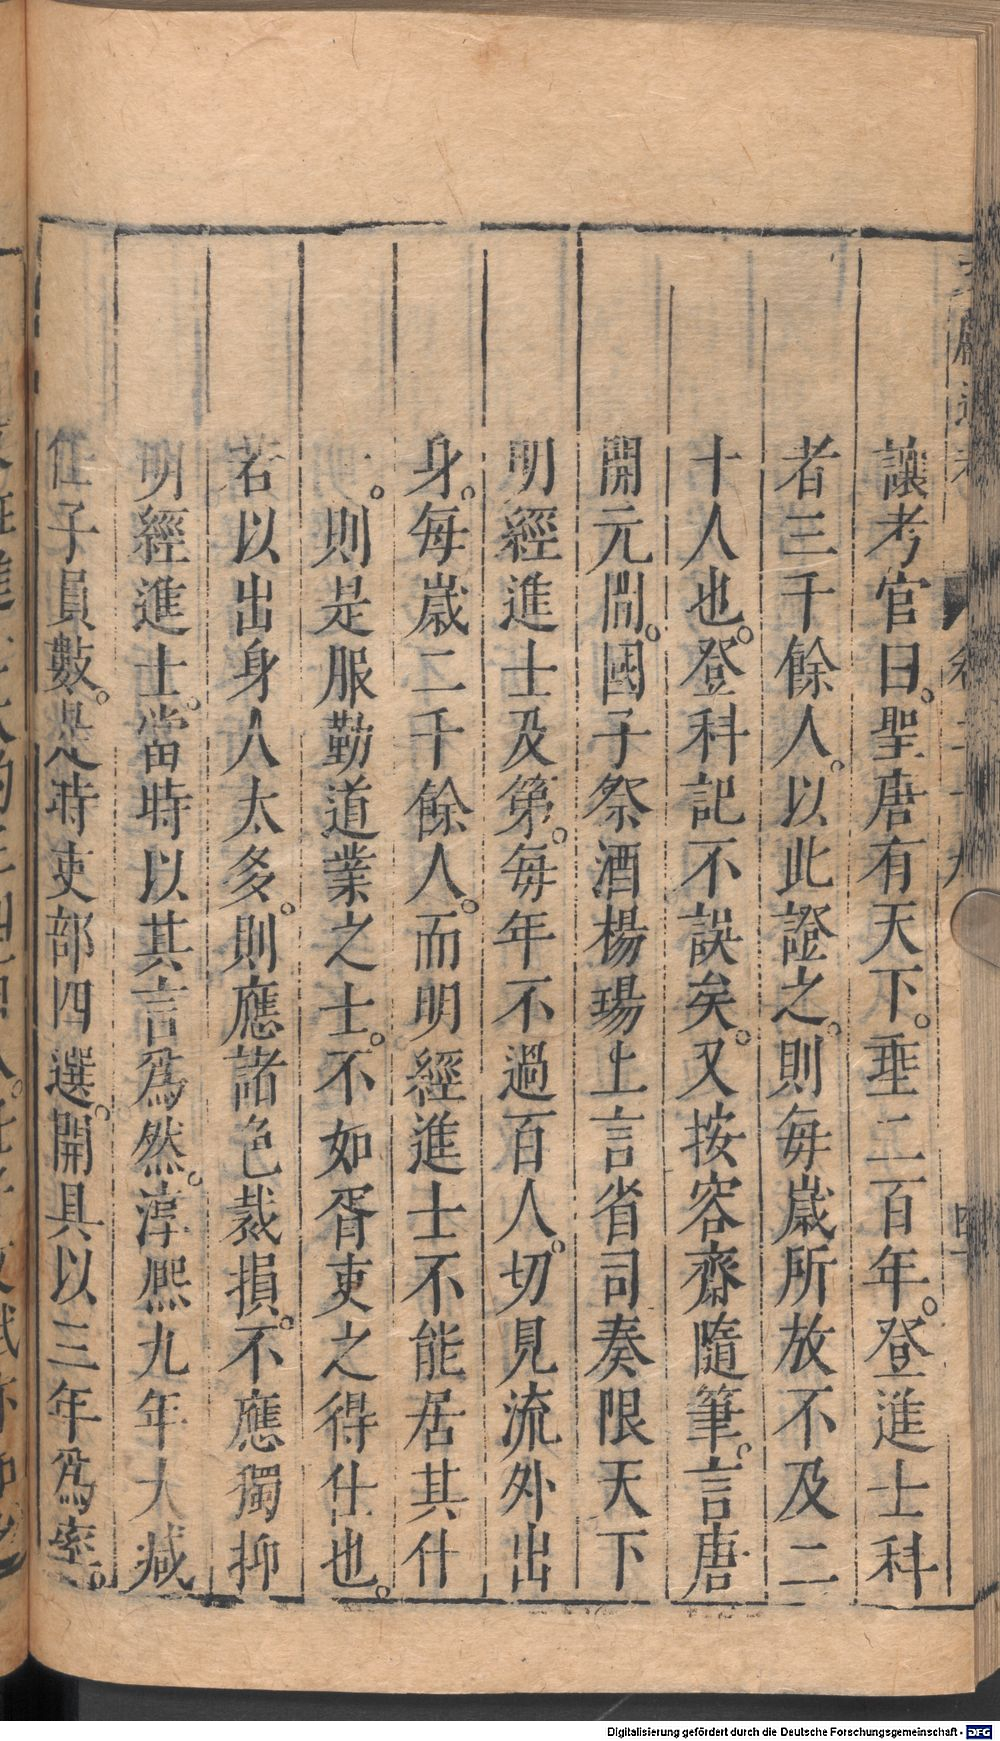 讓考官曰。聖唐有天下。垂二百年。登進士科
者三千餘人。以此證之。則每歲所放不及二
十人也。登科記不誤矣。又按容齋隨筆。言唐
開元間。國子祭酒楊瑒上言省司奏限天下
明經進士及第。每年不過百人。切見流外出
身。每歲二千餘人。而明經進士不能居其什
一。則是服勤道業之士。不如胥吏之得仕也。
若以出身人太多。則應諸色裁損。不應獨抑
明經進士。當時以其言爲然。淳熙九年大減
任子員數。是時吏部四選。開具以三年爲率。
Digitalisierung gefördert durch die Deutsche Forschungsgemeinschaft - DFG